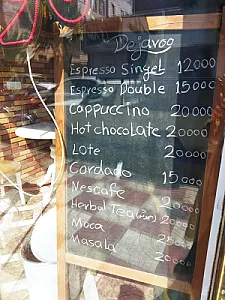 Dejavoo
Espresso Singel 12000
Espresso Double 15000
Cappuccino 20000
Hot chocolate 20000
Lote 20000
Cordado 15000
Nescafe 20000
Herbal Tea 20000
Moca 25000
Masala 20000